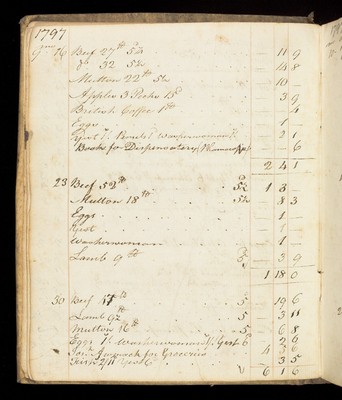 1797
16 Beef 27 lb 5d — 11 9
do 32 5½ — 14 8
Mutton 22 lb 5½ — 10 —
Apples 3 Pecks 15d — 3 9
British Coffee 1 lb — 4
Eggs — 1 —
Yest Washerwoman — 2 1
Books for Dispensatory — 6
2 4 1
23 Beef 52 lb 5½ 1 3 —
Mutton 18 lb 5½ — 8 3
Eggs — 1 —
Yest — 1 —
Washerwoman — 1 —
Lamb 9 lb 5 — 3 9
1 18 0
30 Beef 47 lb 5 — 19 6
Lamb 9½ 5 — 3 11
Mutton 16 lb 5 — 6 8
Eggs 1s Washerwoman 1s Yest 6d — 2 6
for Groceries 4 5 6
3 5
6 1 6